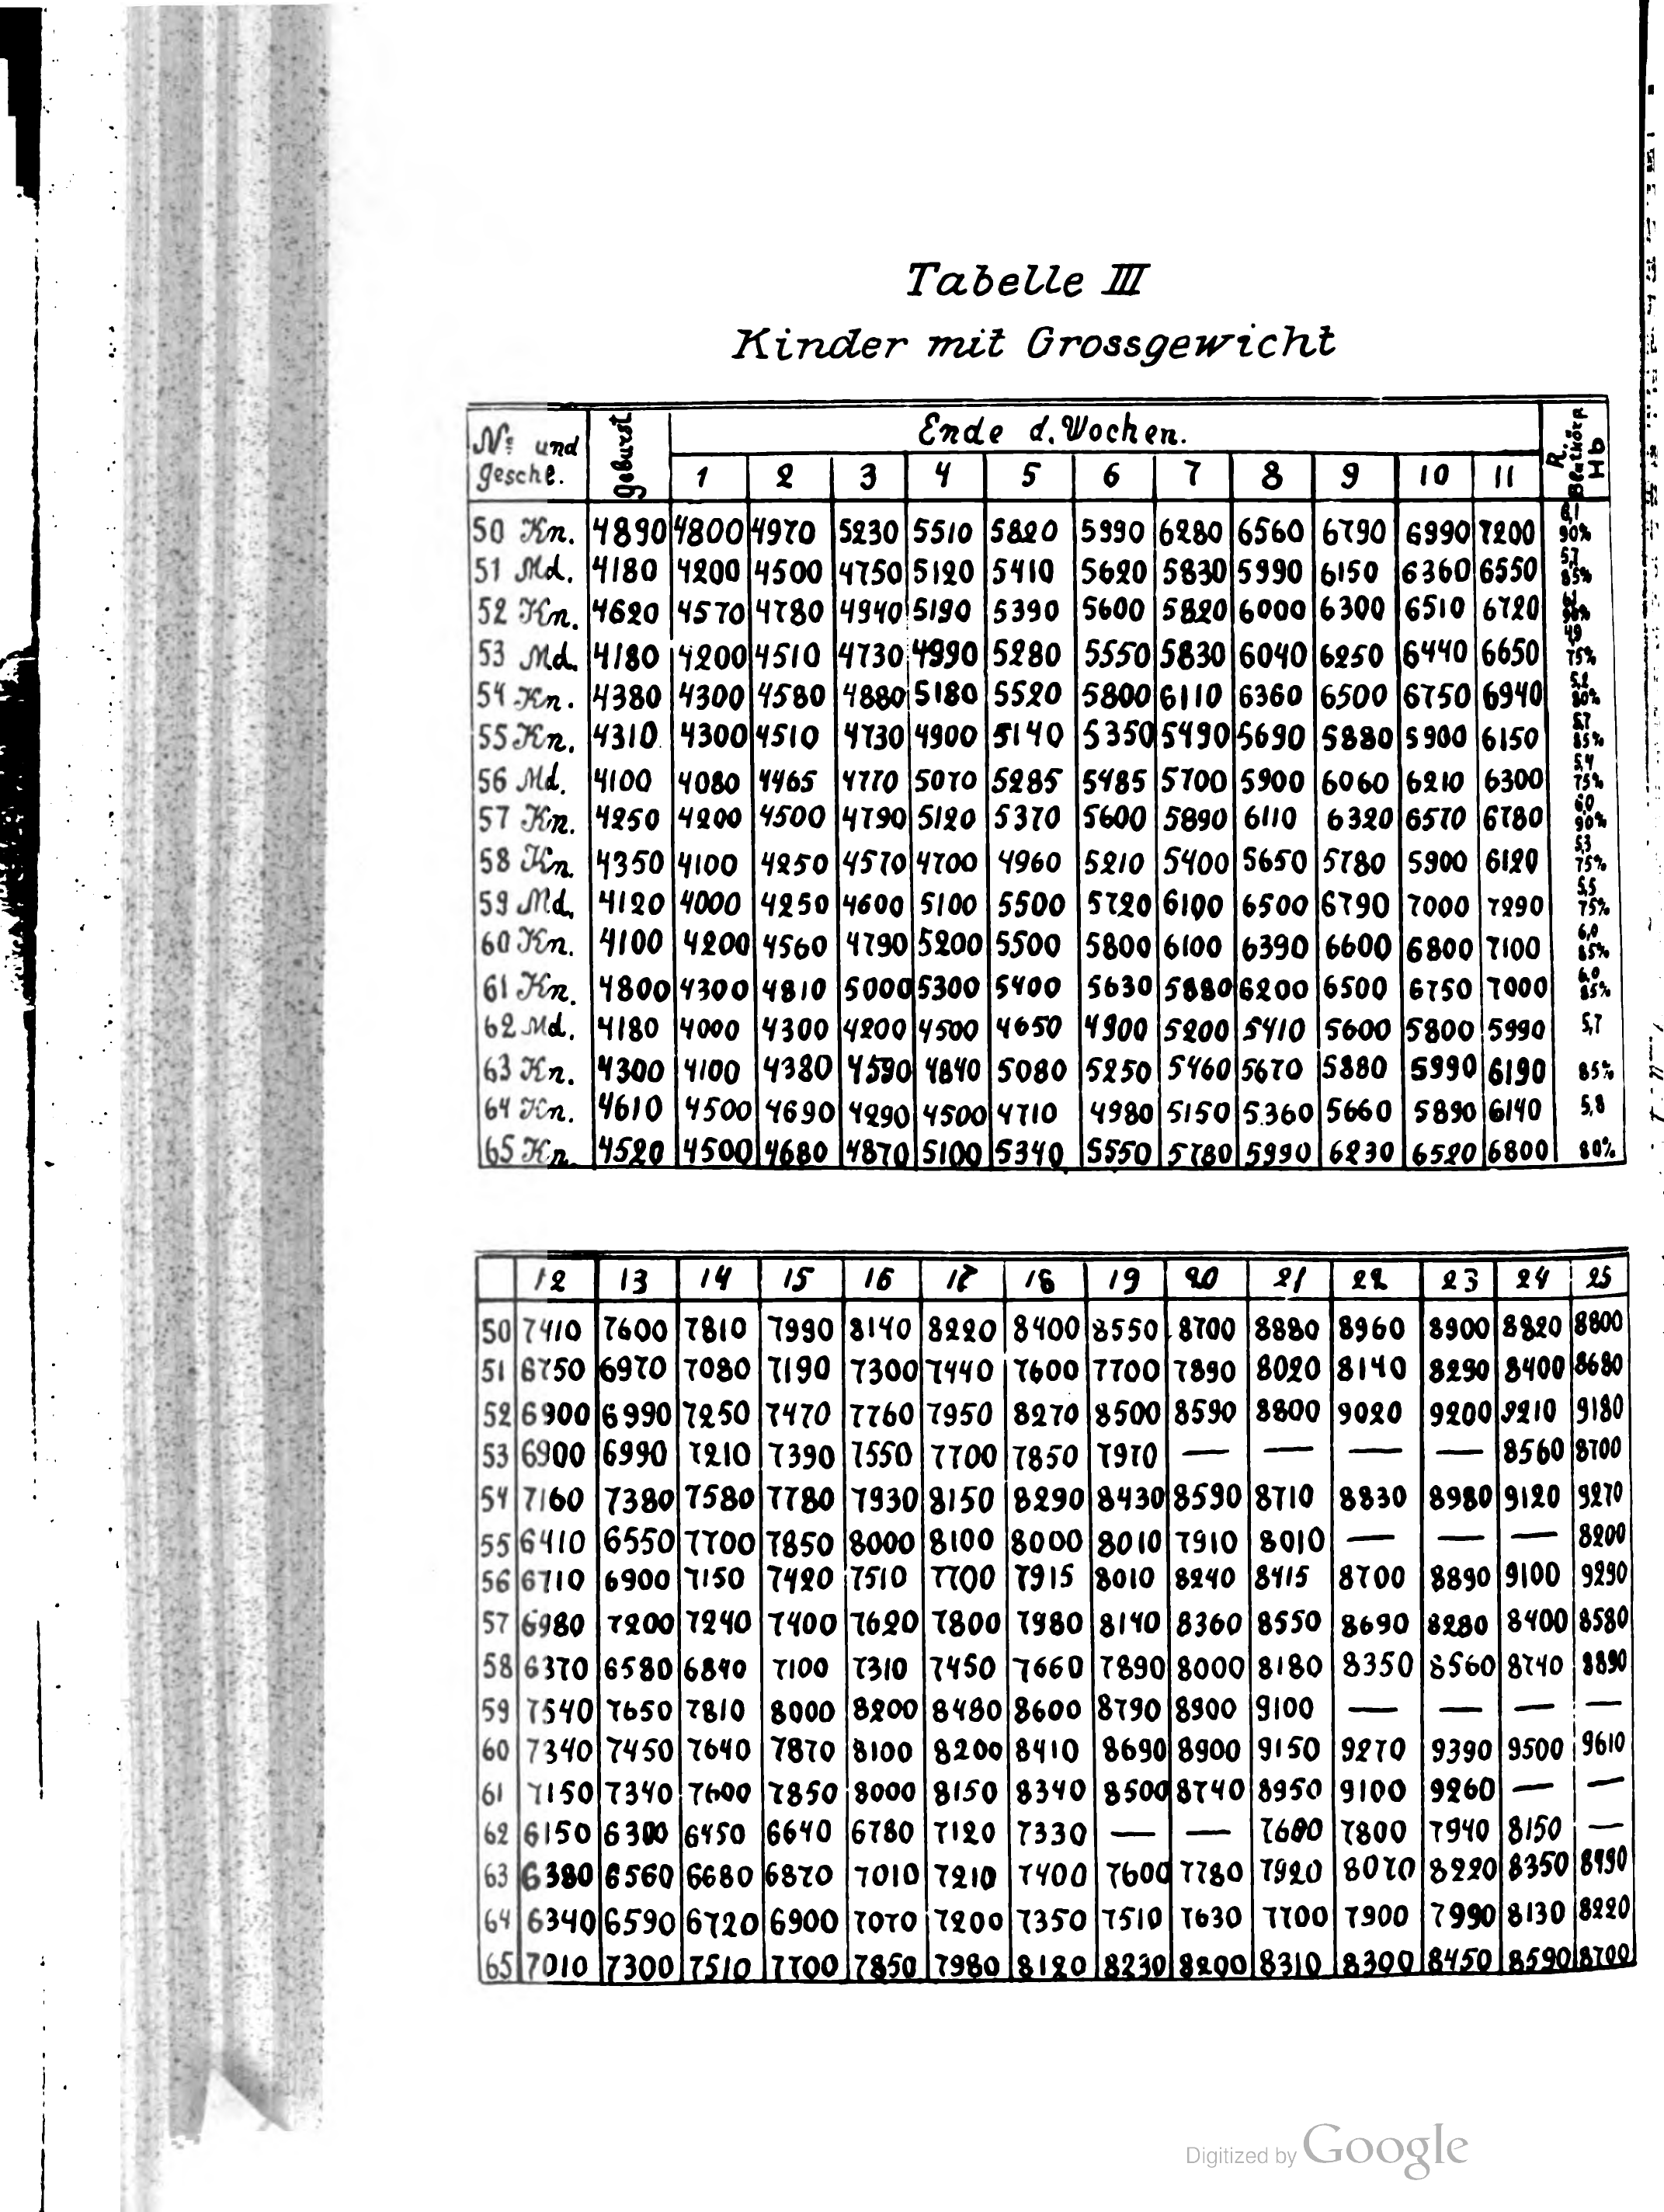 Tabelle III
Kinder mit Grossgewicht
Nº und geschl. Geburst Ende d. Wochen. R. Blutkörp Hb
1 2 3 4 5 6 7 8 9 10 11
50 Kn. 4890 4800 4970 5230 5510 5820 5990 6280 6560 6790 6990 7200 6,1 90%
51 Md. 4180 4200 4500 4750 5120 5410 5620 5830 5990 6150 6360 6550 5,7 85%
52 Kn. 4620 4570 4780 4940 5190 5390 5600 5820 6000 6300 6510 6720 90%
53 Md. 4180 4200 4510 4730 4990 5280 5550 5830 6040 6250 6440 6650 4,9 75%
54 Kn. 4380 4300 4580 4880 5180 5520 5800 6110 6360 6500 6750 6940 5,2 80%
55 Kn. 4310 4300 4510 4730 4900 5140 5350 5490 5690 5880 5900 6150 5,7 85%
56 Md. 4100 4080 4465 4770 5070 5285 5485 5700 5900 6060 6210 6300 5,4 75%
57 Kn. 4250 4200 4500 4790 5120 5370 5600 5890 6110 6320 6570 6780 6,0 90%
58 Kn. 4350 4100 4250 4570 4700 4960 5210 5400 5650 5780 5900 6120 5,3 75%
59 Md. 4120 4000 4250 4600 5100 5500 5720 6100 6500 6790 7000 7290 5,5 75%
60 Kn. 4100 4200 4560 4790 5200 5500 5800 6100 6390 6600 6800 7100 6,0 85%
61 Kn. 4800 4300 4810 5000 5300 5400 5630 5880 6200 6500 6750 7000 6,0 85%
62 Md. 4180 4000 4300 4200 4500 4650 4900 5200 5410 5600 5800 5990 5,7
63 Kn. 4300 4100 4380 4590 4840 5080 5250 5460 5670 5880 5990 6190 85%
64 Kn. 4610 4500 4690 4290 4500 4710 4980 5150 5.360 5660 5890 6140 5,8
65 Kn. 4520 4500 4680 4870 5100 5340 5550 5780 5990 6230 6520 6800 80%
12 13 14 15 16 17 18 19 20 21 22 23 24 25
50 7410 7600 7810 7990 8140 8220 8400 8550 8700 8880 8960 8900 8820 8800
51 6750 6970 7080 7190 7300 7440 7600 7700 7890 8020 8140 8290 8400 8680
52 6900 6990 7250 7470 7760 7950 8270 8500 8590 8800 9020 9200 9210 9180
53 6900 6990 7210 7390 7550 7700 7850 7970 — — — — 8560 8700
54 7160 7380 7580 7780 7930 8150 8290 8430 8590 8710 8830 8980 9120 9270
55 6410 6550 7700 7850 8000 8100 8000 8010 7910 8010 — — — 8200
56 6710 6900 7150 7420 7510 7700 7915 8010 8240 8415 8700 8890 9100 9290
57 6980 7200 7240 7400 7620 7800 7980 8140 8360 8550 8690 8280 8400 8580
58 6370 6580 6840 7100 7310 7450 7660 7890 8000 8180 8350 8560 8740 8890
59 7540 7650 7810 8000 8200 8480 8600 8790 8900 9100 — — — —
60 7340 7450 7640 7870 8100 8200 8410 8690 8900 9150 9270 9390 9500 9610
61 7150 7340 7600 7850 8000 8150 8340 8500 8740 8950 9100 9260 — —
62 6150 6300 6450 6640 6780 7120 7330 — — 7680 7800 7940 8150 —
63 6380 6560 6680 6870 7010 7210 7400 7600 7780 7920 8070 8220 8350
64 6340 6590 6720 6900 7070 7200 7350 7510 7630 7700 7900 7990 8130 8220
65 7010 7300 7510 7700 7850 7980 8120 8230 8200 8310 8300 8450 8590 8700
Digitized by Google